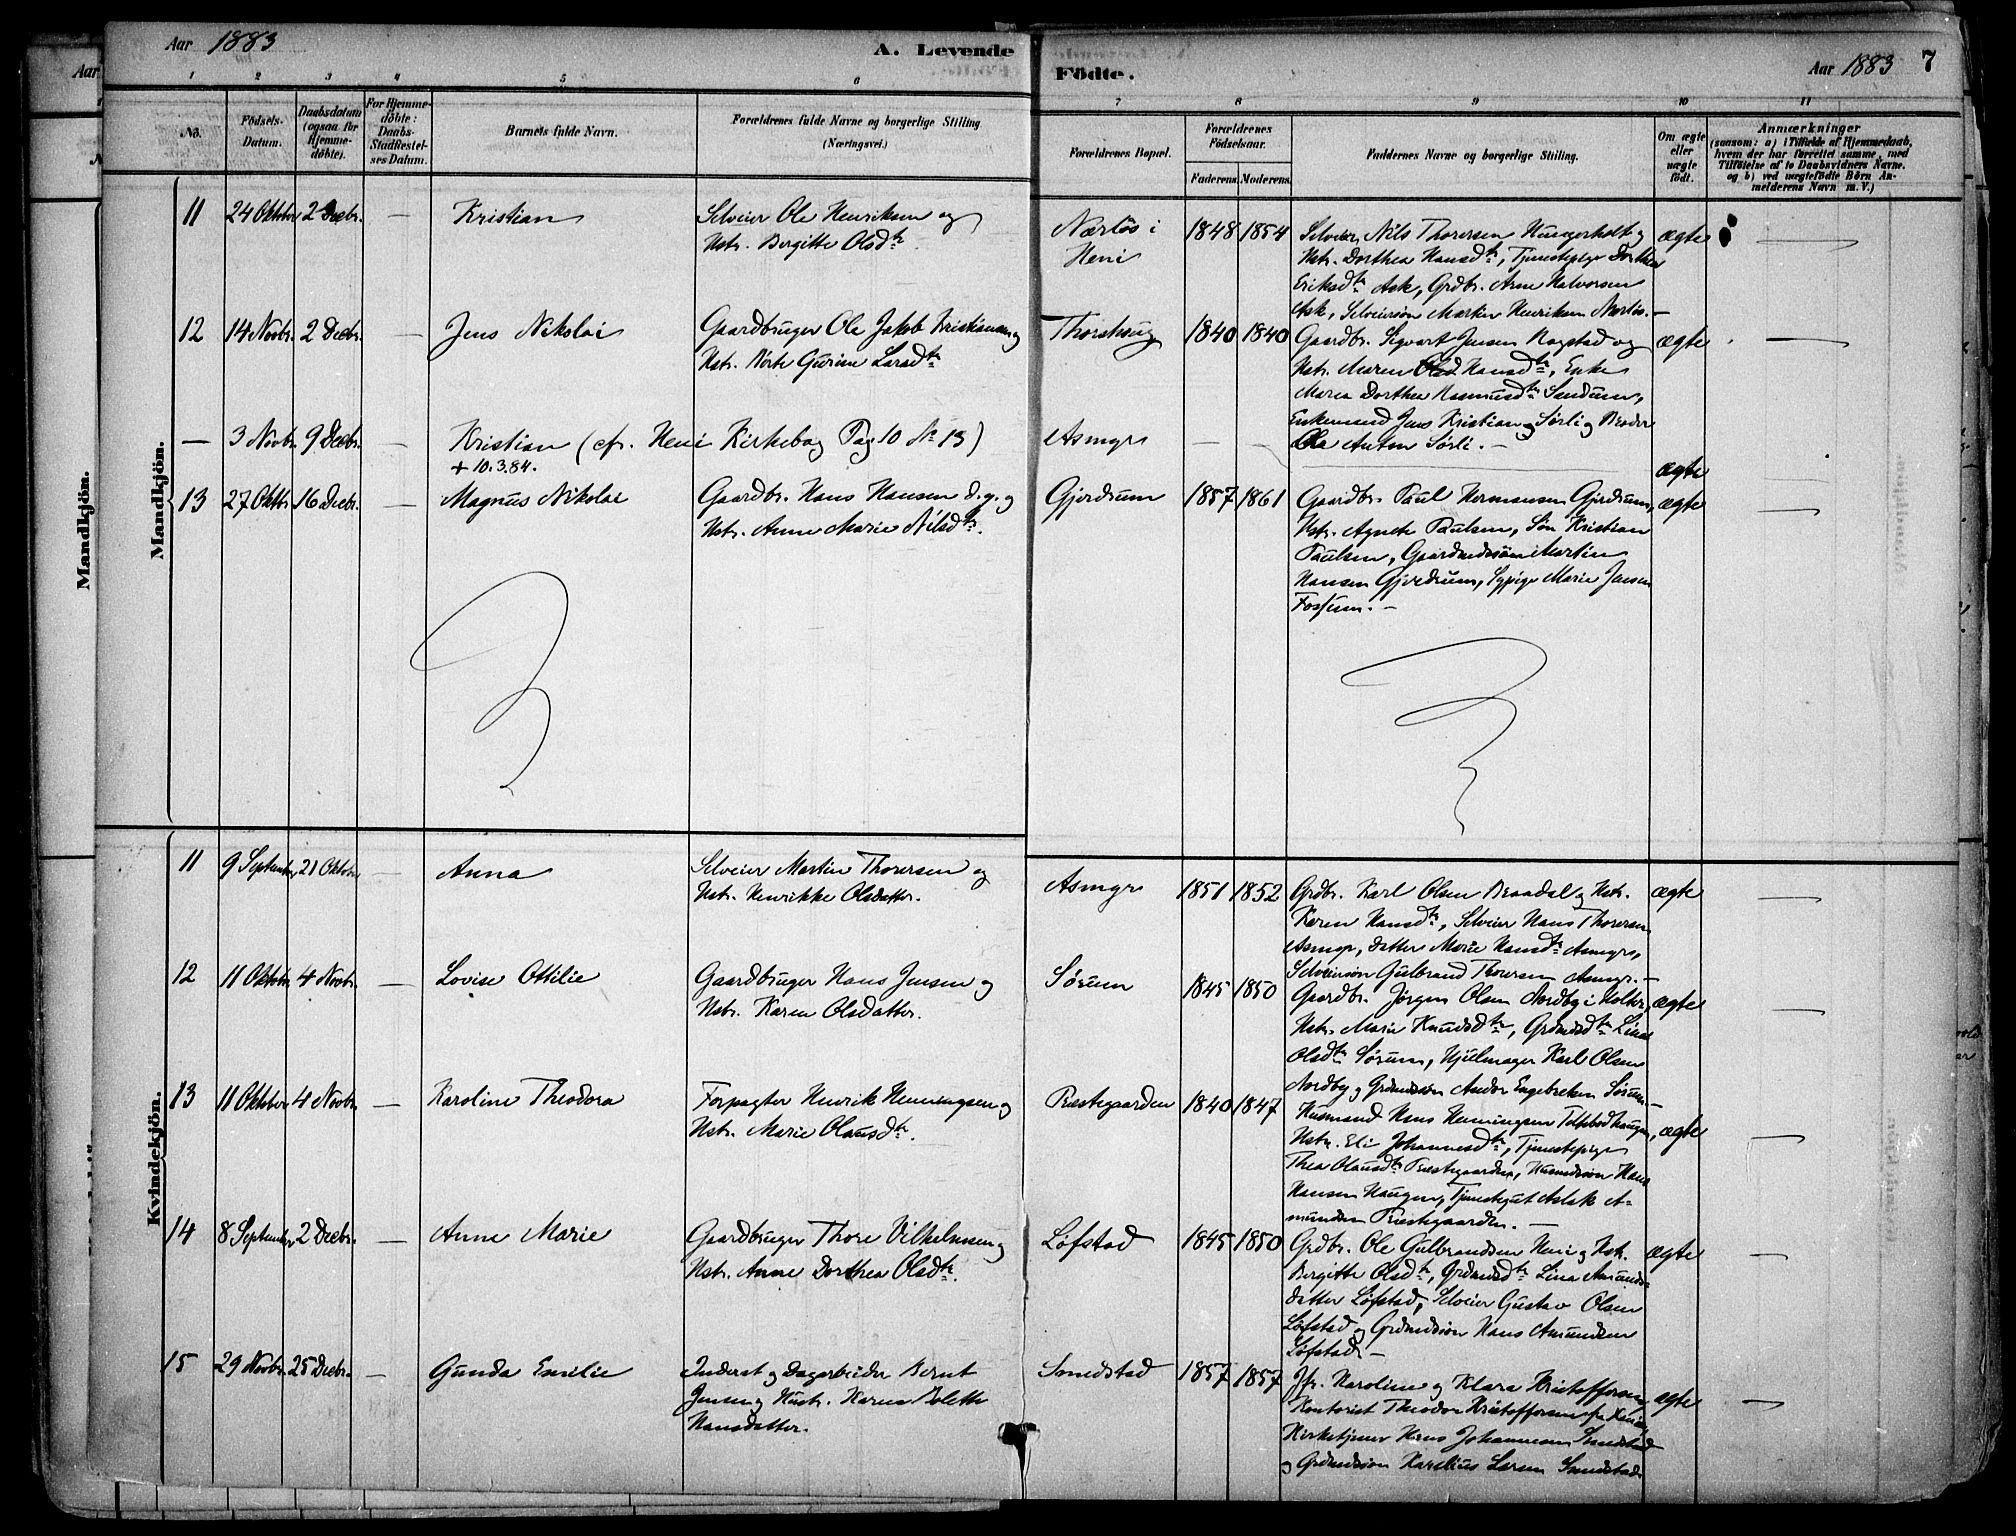 Aar 1883
A. Levende
Födte.
Aar 1883
7
1 2 3 4 5 6 7 8 9 10 11
No.
Födsels-
Datum.
Daabsdatum
(ogsaa for
Hjemme-
döbte).
For Hjemme-
döbte:
Daabs-
Stadfæstel-
ses Datum.
Barnets fulde Navn.
Forældrenes fulde Navne og borgerlige Stilling
(Næringsvei.)
Forældrenes Bopæl.
Forældrenes
Födselsaar.
Faderens. Moderens.
Faddernes Navne og borgerlige Stilling.
Om ægte
eller
uægte
födt.
Anmærkninger
(saasom: a) i Tilfælde af Hjemmedaab,
hvem der har forrettet samme, med
Tilföielse af to Daabsvidners Navne.
og b) ved uægtefödte Börn An-
melderens Navn m. V.)
Mandkjön.
Mandkjön.
11 24 Oktbr 2 Decbr. — Kristian
Selveier Ole Henriksen og
Hstr. Bergitte Olsdtr.
Nærløs i
Heni
1848 1854
Selveier Nils Thoresen Hungerholt og
Hstr. Dorthea Hansdtr, Tjenestepige Dorthea
Eriksdtr Ask, Grdbr. Arne Halvorsen
Ask, Selveiersøn Martin Henriksen Nærløs. —
ægte
12 14 Novbr. 2 Decbr. — Jens Nikolai
Gaardbruger Ole Jakob Kristiansen og
Hstr. Marte Gurine Larsdtr
Thorshaug
1840 1840
Gaardbr. Sigvart Jensen Ragstad og
Hstr. Maren Hansdtr, Enke
Maren Dorthea Rasmusdtr Sundum,
Enkemand Jens Kristian Sørli og Broder
Ole Anton Sørli. —
ægte
— 3 Novbr 9 Decbr. — Kristian (cfr. Heni Kirkebog Pag 10 No 13)
Asmyr — —
ægte
+ 10.3.84.
13 27 Oktbr. 16 Decbr. — Magnus Nikolai
Gaardbr. Hans Hansen d. y. og
Hstr. Anne Marie Nilsdtr.
Gjerdrum
1857 1861
Gaardbr. Paul Hermansen Gjerdrum,
Hstr. Agnete Paulsen, Søn Kristian
Paulsen, Gaardmdssøn Martin
Hansen Gjerdrum, Sypige Marie Jensen
Fossum. —
ægte
Kvindekjön.
11 9 September 21 Oktober — Anna
Selveier Martin Thoresen og
Hstr. Henrikke Olsdatter.
Asmyr
1851 1852
Grdbr. Karl Olsen Braadal og Hstr.
Karen Hansdtr, Selveier Hans Thoresen
Asmyr, datter Marie Hansdtr Asmyr,
Selveiersøn Gulbrand Thoresen Asmyr. —
ægte
12 11 Oktober 4 Novbr. — Lovise Ottilie
Gaardbruger Hans Jensen og
Hstr. Karen Olsdatter.
Sørum
1845 1850
Gaardbr. Jørgen Olsen Nordby i Holter,
Hstr. Marie Knudsdtr, Grdmdsdtr Lina
Olsdtr Sørum, Hjulmager Karl Olsen
Nordby og Grdmdssøn Andor Engebretsen Sørum. —
ægte
13 11 Oktober 4 Novbr — Karoline Theodora
Forpagter Henrik Henningsen og
Hstr. Marie Olausdtr.
Præstegaarden
1840 1847
Husmand Hans Henningsen Toftsbodhaugen,
Hstr. Eli Johannesdtr, Tjenestepige
Thea Olausdtr Præstegaarden, Husmdssøn Hans
Hansen Haugen, Tjenestegut Aslak A-
mundsen Præstegaarden. —
ægte
14 8 September 2 Decbr. — Anne Marie
Gaardbruger Thore Vilhelmsen og
Hstr. Anne Dorthea Olsdtr.
Løfstad
1845 1850
Grdbr. Ole Gulbrandsen Heni og Hstr.
Bergitte Olsdtr, Grdmdsdtr Lina Amunds-
datter Løfstad, Selveier Gustav Olsen
Løfstad og Grdmdssøn Hans Amundsen
Løfstad. —
ægte
15 29 Novbr. 25 Decbr. — Gunda Emilie
Inderst og Dagarbeider Bernt
Jensen og Hustr. Karen Bolette
Hansdatter.
Smedstad
1857 1857
Jfr. Karoline og Klara Kristoffersen,
Kontorist Theodor Kristoffersen fra Krania,
Kirketjener Hans Johannesen Smedstad
og Grdmdssøn Karelius Larsen Smedstad.
ægte